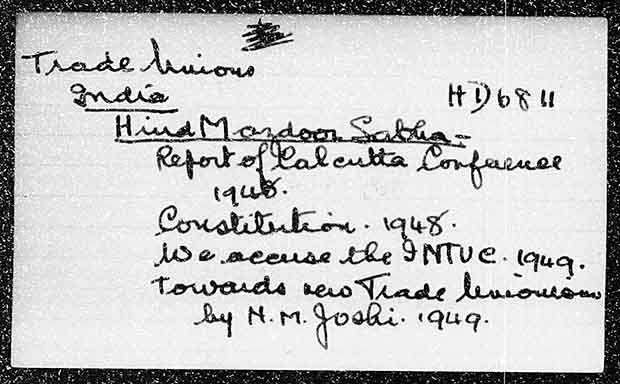 Trade Unions
India
HD6811
Hind Mazdoor Sabha -
Report of Calcutta Conference
1948.
Constitution. 1948.
We accuse the INTUC. 1949.
Towards new Trade Unionism
by N. M. Joshi. 1949.